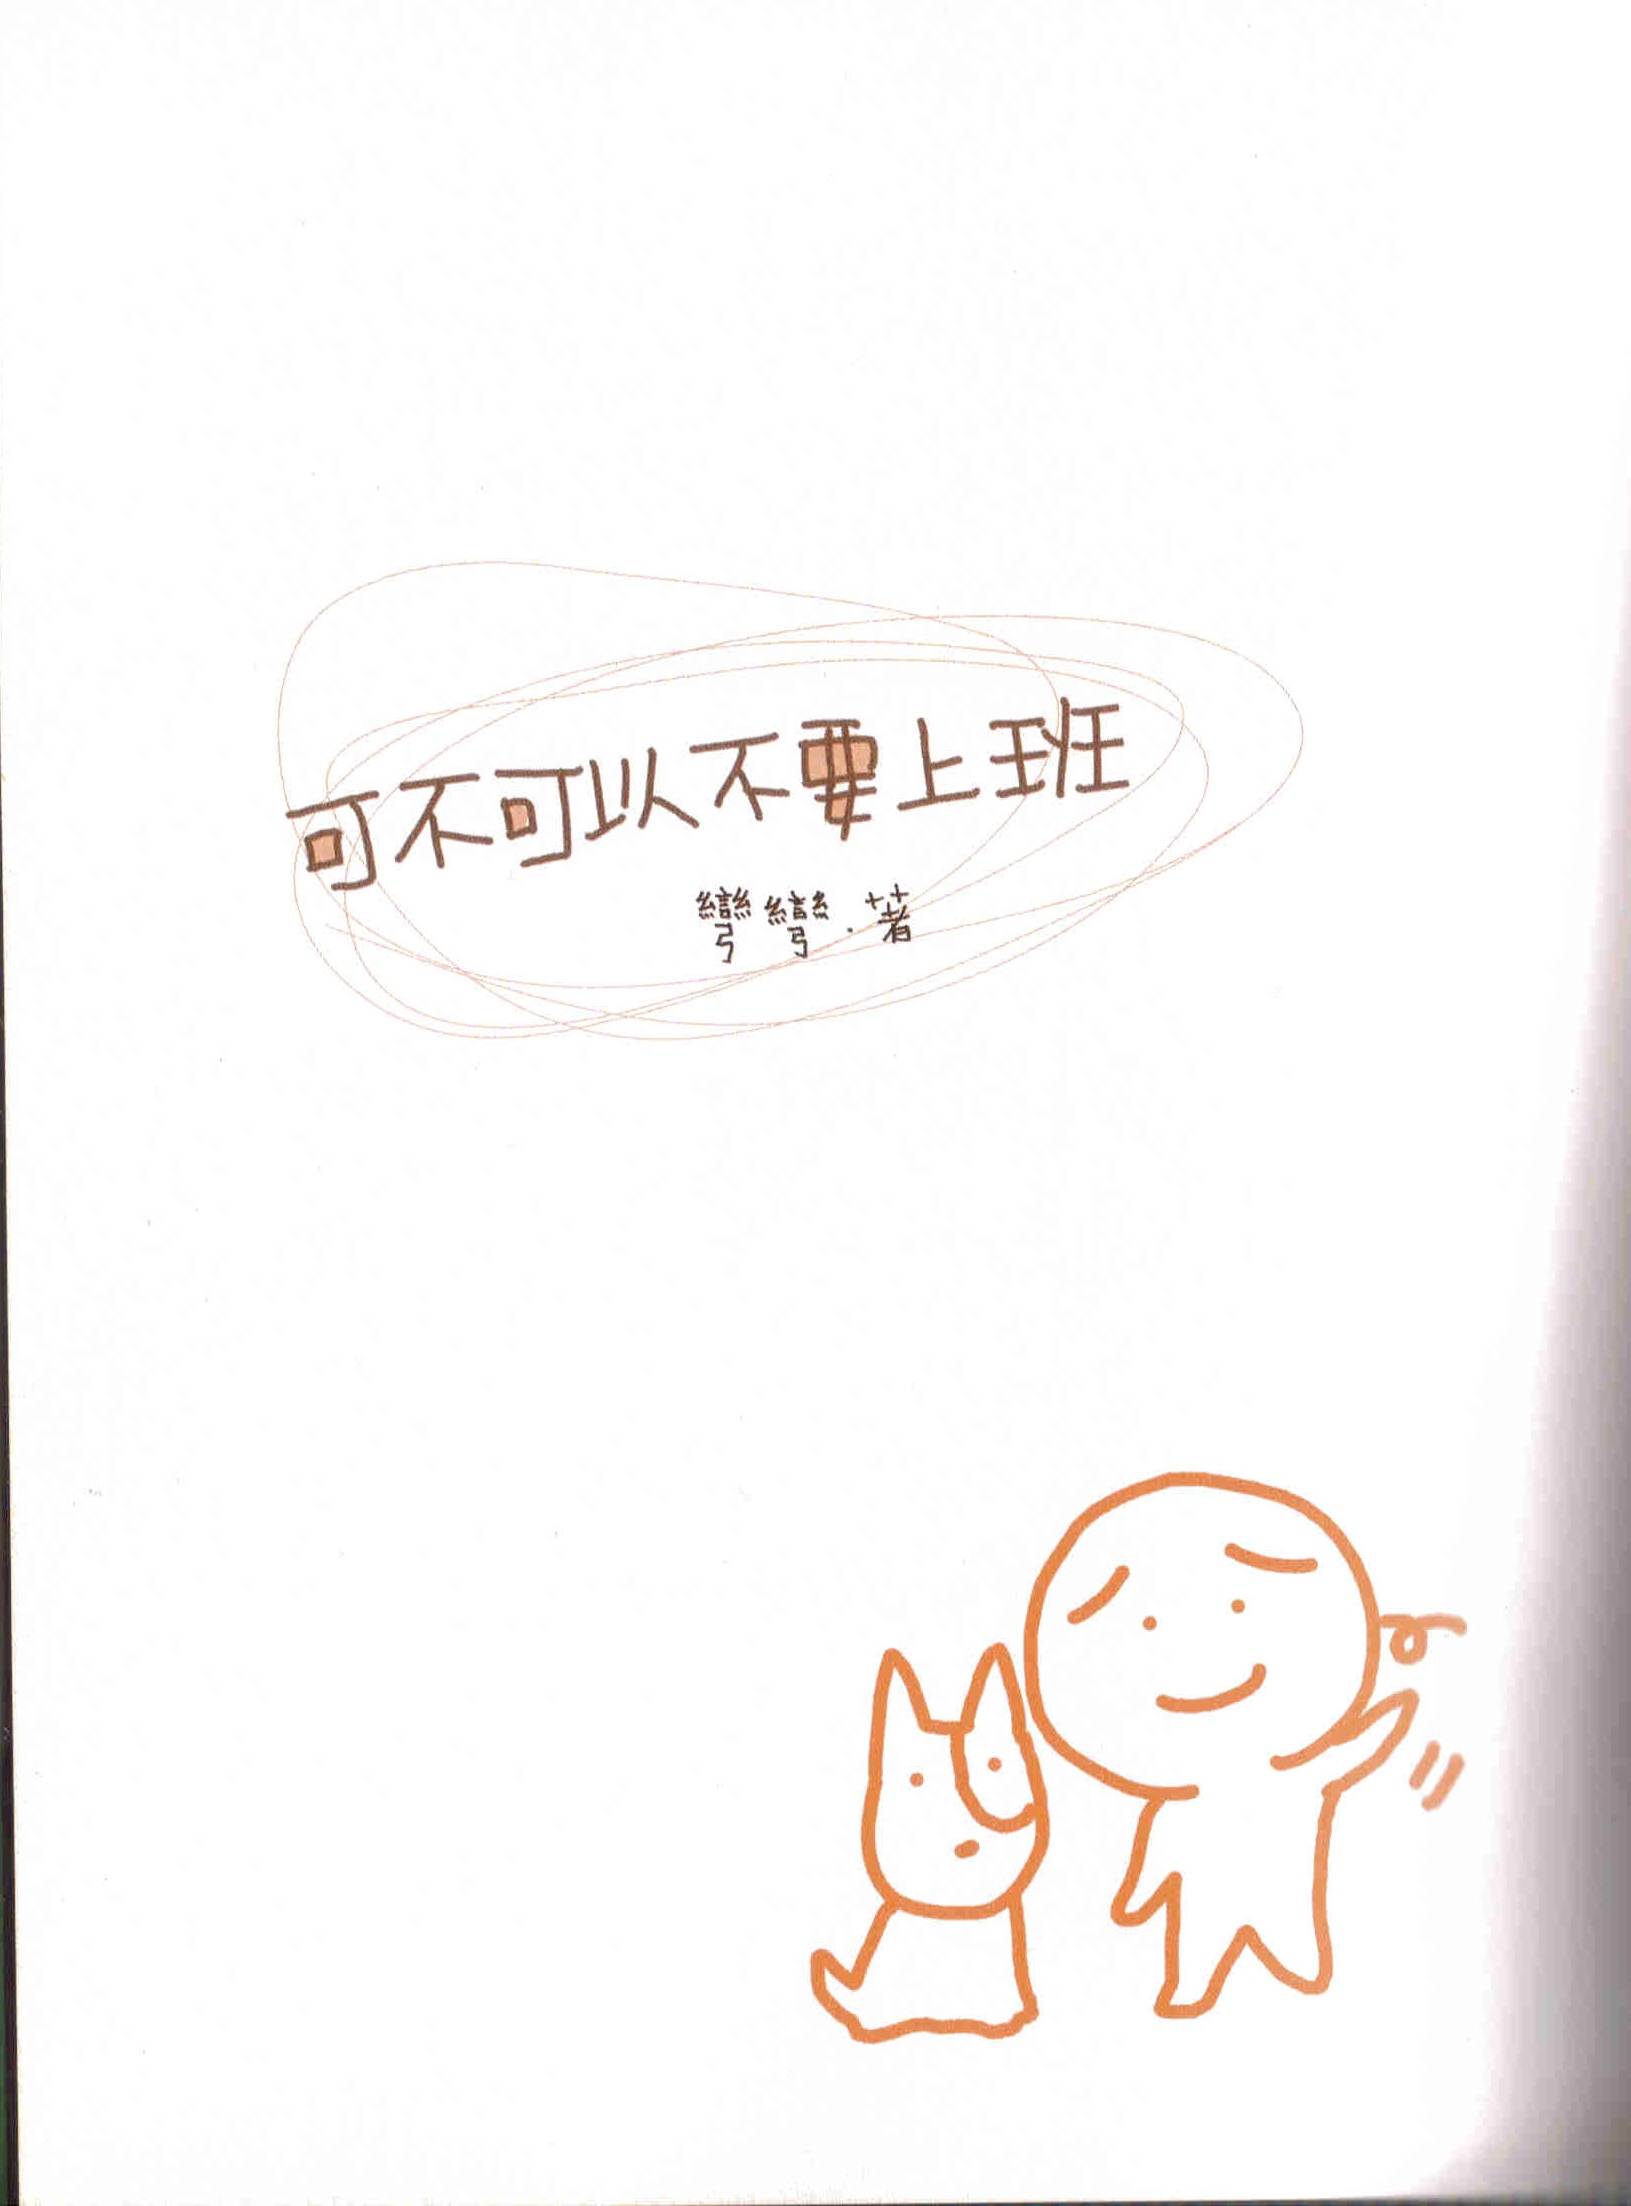 可不可以不要上班
彎彎.著